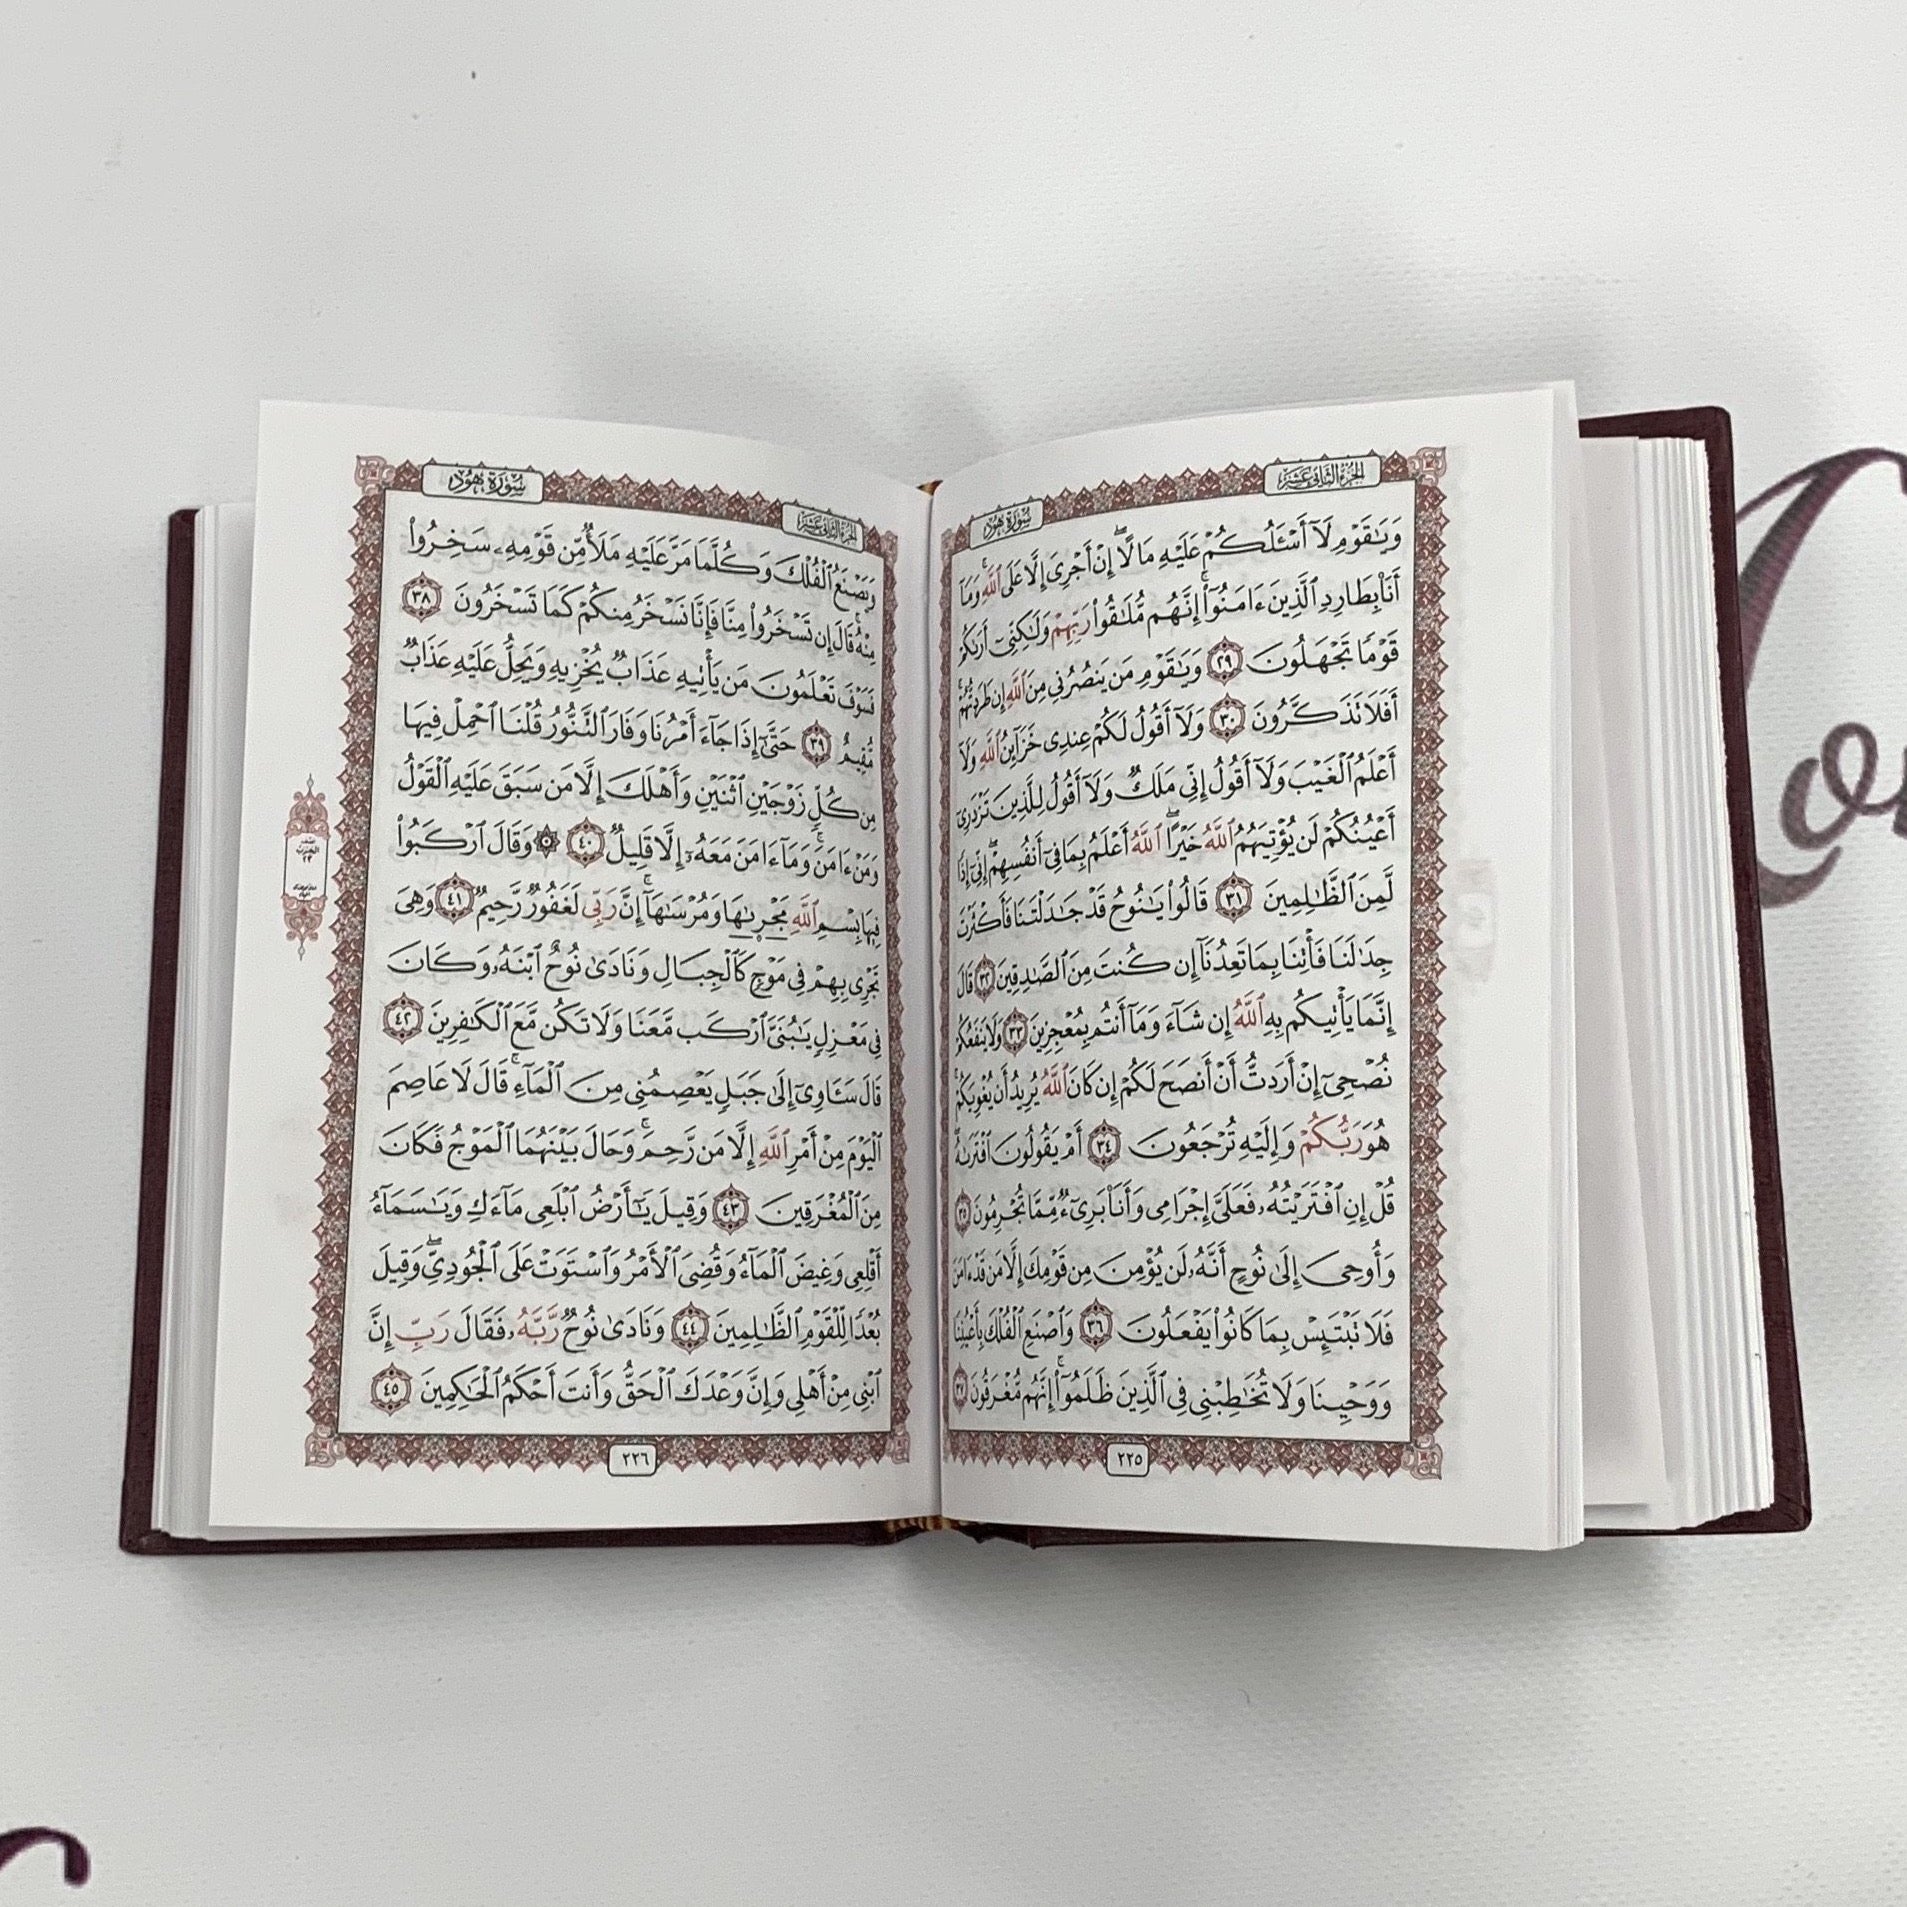 سُورَةُ هُود
الجُزءُ الثَّانِي عَشَر
وَيَٰقَوْمِ لَآ أَسْـَٔلُكُمْ عَلَيْهِ مَالًا ۖ إِنْ أَجْرِىَ إِلَّا عَلَى ٱللَّهِ ۚ وَمَآ
أَنَا۠ بِطَارِدِ ٱلَّذِينَ ءَامَنُوٓا۟ ۚ إِنَّهُم مُّلَٰقُوا۟ رَبِّهِمْ وَلَٰكِنِّىٓ أَرَىٰكُمْ
قَوْمًا تَجْهَلُونَ ٢٩ وَيَٰقَوْمِ مَن يَنصُرُنِى مِنَ ٱللَّهِ إِن طَرَدتُّهُمْ ۚ
أَفَلَا تَذَكَّرُونَ ٣٠ وَلَآ أَقُولُ لَكُمْ عِندِى خَزَآئِنُ ٱللَّهِ وَلَآ
أَعْلَمُ ٱلْغَيْبَ وَلَآ أَقُولُ إِنِّى مَلَكٌ وَلَآ أَقُولُ لِلَّذِينَ تَزْدَرِىٓ
أَعْيُنُكُمْ لَن يُؤْتِيَهُمُ ٱللَّهُ خَيْرًا ۖ ٱللَّهُ أَعْلَمُ بِمَا فِىٓ أَنفُسِهِمْ ۖ إِنِّىٓ إِذًا
لَّمِنَ ٱلظَّٰلِمِينَ ٣١ قَالُوا۟ يَٰنُوحُ قَدْ جَٰدَلْتَنَا فَأَكْثَرْتَ
جِدَٰلَنَا فَأْتِنَا بِمَا تَعِدُنَآ إِن كُنتَ مِنَ ٱلصَّٰدِقِينَ ٣٢ قَالَ
إِنَّمَا يَأْتِيكُم بِهِ ٱللَّهُ إِن شَآءَ وَمَآ أَنتُم بِمُعْجِزِينَ ٣٣ وَلَا يَنفَعُكُمْ
نُصْحِىٓ إِنْ أَرَدتُّ أَنْ أَنصَحَ لَكُمْ إِن كَانَ ٱللَّهُ يُرِيدُ أَن يُغْوِيَكُمْ ۚ
هُوَ رَبُّكُمْ وَإِلَيْهِ تُرْجَعُونَ ٣٤ أَمْ يَقُولُونَ ٱفْتَرَىٰهُ ۖ
قُلْ إِنِ ٱفْتَرَيْتُهُۥ فَعَلَىَّ إِجْرَامِى وَأَنَا۠ بَرِىٓءٌ مِّمَّا تُجْرِمُونَ ٣٥
وَأُوحِىَ إِلَىٰ نُوحٍ أَنَّهُۥ لَن يُؤْمِنَ مِن قَوْمِكَ إِلَّا مَن قَدْ ءَامَنَ
فَلَا تَبْتَئِسْ بِمَا كَانُوا۟ يَفْعَلُونَ ٣٦ وَٱصْنَعِ ٱلْفُلْكَ بِأَعْيُنِنَا
وَوَحْيِنَا وَلَا تُخَٰطِبْنِى فِى ٱلَّذِينَ ظَلَمُوٓا۟ ۚ إِنَّهُم مُّغْرَقُونَ ٣٧
٢٢٥
سُورَةُ هُود
الجُزءُ الثَّانِي عَشَر
وَيَصْنَعُ ٱلْفُلْكَ وَكُلَّمَا مَرَّ عَلَيْهِ مَلَأٌ مِّن قَوْمِهِۦ سَخِرُوا۟
مِنْهُ ۚ قَالَ إِن تَسْخَرُوا۟ مِنَّا فَإِنَّا نَسْخَرُ مِنكُمْ كَمَا تَسْخَرُونَ ٣٨
فَسَوْفَ تَعْلَمُونَ مَن يَأْتِيهِ عَذَابٌ يُخْزِيهِ وَيَحِلُّ عَلَيْهِ عَذَابٌ
مُّقِيمٌ ٣٩ حَتَّىٰٓ إِذَا جَآءَ أَمْرُنَا وَفَارَ ٱلتَّنُّورُ قُلْنَا ٱحْمِلْ فِيهَا
مِن كُلٍّ زَوْجَيْنِ ٱثْنَيْنِ وَأَهْلَكَ إِلَّا مَن سَبَقَ عَلَيْهِ ٱلْقَوْلُ
وَمَنْ ءَامَنَ ۚ وَمَآ ءَامَنَ مَعَهُۥٓ إِلَّا قَلِيلٌ ٤٠ ۞ وَقَالَ ٱرْكَبُوا۟
فِيهَا بِسْمِ ٱللَّهِ مَجْر۪ىٰهَا وَمُرْسَىٰهَآ ۚ إِنَّ رَبِّى لَغَفُورٌ رَّحِيمٌ ٤١ وَهِىَ
تَجْرِى بِهِمْ فِى مَوْجٍ كَٱلْجِبَالِ وَنَادَىٰ نُوحٌ ٱبْنَهُۥ وَكَانَ
فِى مَعْزِلٍ يَٰبُنَىَّ ٱرْكَب مَّعَنَا وَلَا تَكُن مَّعَ ٱلْكَٰفِرِينَ ٤٢
قَالَ سَـَٔاوِىٓ إِلَىٰ جَبَلٍ يَعْصِمُنِى مِنَ ٱلْمَآءِ ۚ قَالَ لَا عَاصِمَ
ٱلْيَوْمَ مِنْ أَمْرِ ٱللَّهِ إِلَّا مَن رَّحِمَ ۚ وَحَالَ بَيْنَهُمَا ٱلْمَوْجُ فَكَانَ
مِنَ ٱلْمُغْرَقِينَ ٤٣ وَقِيلَ يَٰٓأَرْضُ ٱبْلَعِى مَآءَكِ وَيَٰسَمَآءُ
أَقْلِعِى وَغِيضَ ٱلْمَآءُ وَقُضِىَ ٱلْأَمْرُ وَٱسْتَوَتْ عَلَى ٱلْجُودِىِّ ۖ وَقِيلَ
بُعْدًا لِّلْقَوْمِ ٱلظَّٰلِمِينَ ٤٤ وَنَادَىٰ نُوحٌ رَّبَّهُۥ فَقَالَ رَبِّ إِنَّ
ٱبْنِى مِنْ أَهْلِى وَإِنَّ وَعْدَكَ ٱلْحَقُّ وَأَنتَ أَحْكَمُ ٱلْحَٰكِمِينَ ٤٥
٢٢٦